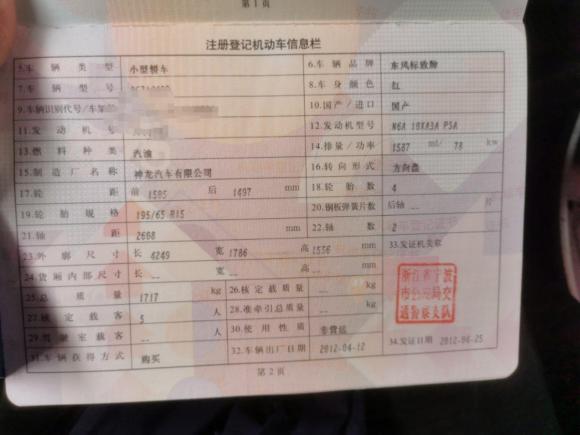 第1页
注册登记机动车信息栏
5.车辆类型 小型轿车 6.车辆品牌 东风标致牌
7.车辆型号 8.车身颜色 红
9.车辆识别代号/车架号 10.国产/进口 国产
11.发动机号 12.发动机型号 N6A 10XA3A PSA
13.燃料种类 汽油 14.排量/功率 1587 ml/ 78 kw
15.制造厂名称 神龙汽车有限公司 16.转向形式 方向盘
17.轮距 前 1505 后 1497 mm 18.轮胎数 4
19.轮胎规格 195/65 R15 20.钢板弹簧片数 后轴 -- 片
21.轴距 2608 mm 22.轴数 2
23.外廓尺寸 长 4249 宽 1786 高 1556 mm 33.发证机关章
24.货厢内部尺寸 长 -- 宽 -- 高 -- mm
25.总质量 1717 kg 26.核定载质量 -- kg
27.核定载客 5 人 28.准牵引总质量 -- kg
29.驾驶室载客 -- 人 30.使用性质 非营运
31.车辆获得方式 购买 32.车辆出厂日期 2012-04-12 34.发证日期 2012-04-25
浙江省宁波
市公安局交
通警察支队
第2页